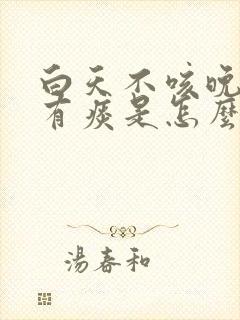 白天不咳晚
有痰是怎麼
湯春和